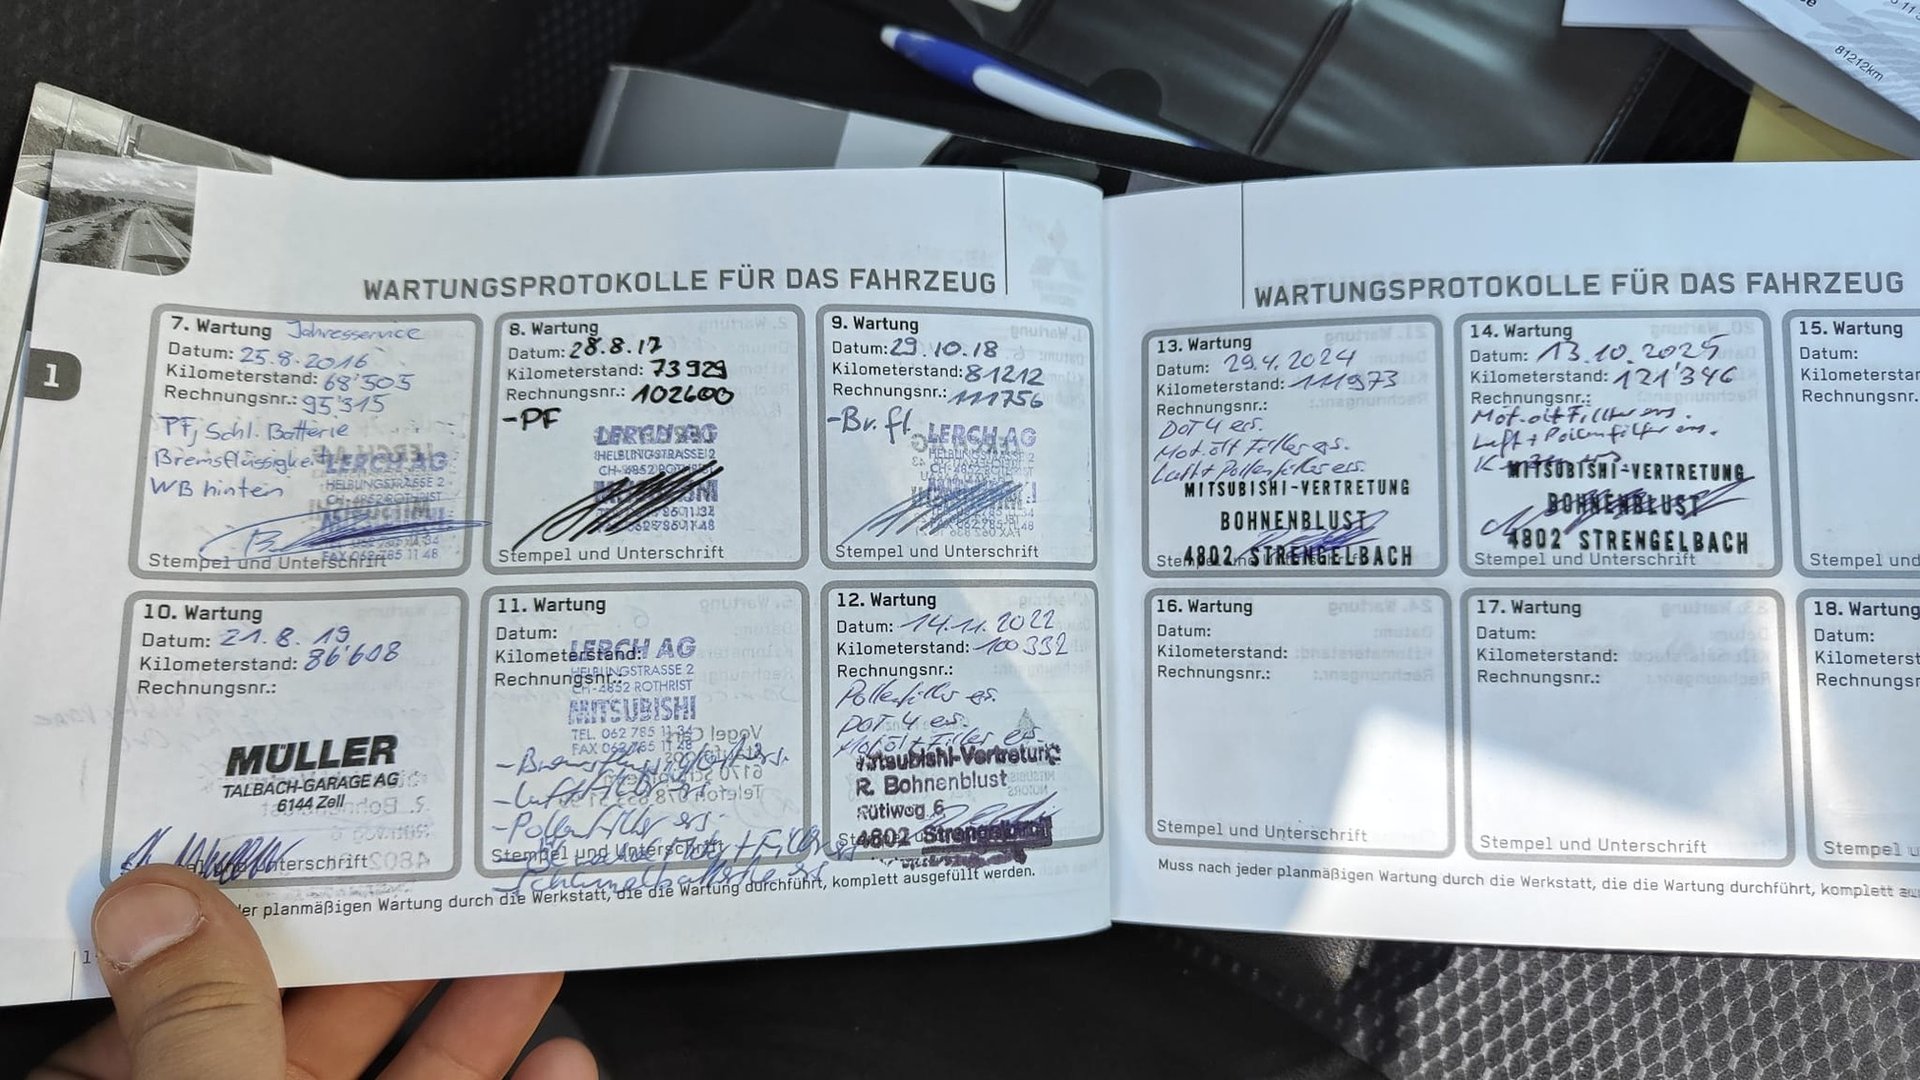 81212km
WARTUNGSPROTOKOLLE FÜR DAS FAHRZEUG
1
7. Wartung Jahresservice
Datum: 25.8.2016
Kilometerstand: 68'505
Rechnungsnr.: 95'315
PF, Schl. Batterie
Bremsflüssigkeit
WB hinten
LERCH AG
HELBLINGSTRASSE 2
CH-4852 ROTHRIST
FAX 062 785 11 48
Stempel und Unterschrift
8. Wartung
Datum: 28.8.17
Kilometerstand: 73929
Rechnungsnr.: 102600
-PF
LERCH AG
HELBLINGSTRASSE 2
CH-4852 ROTHRIST
Stempel und Unterschrift
9. Wartung
Datum: 29.10.18
Kilometerstand: 81212
Rechnungsnr.: 111756
-Br.fl.
LERCH AG
HELBLINGSTRASSE 2
CH-4852 ROTHRIST
Stempel und Unterschrift
10. Wartung
Datum: 21.8.19
Kilometerstand: 86'608
Rechnungsnr.:
MÜLLER
TALBACH-GARAGE AG
6144 Zell
Unterschrift
11. Wartung
Datum:
Kilometerstand:
Rechnungsnr.:
LERCH AG
HELBLINGSTRASSE 2
CH-4852 ROTHRIST
MITSUBISHI
TEL. 062 785 11 34
FAX 062 785 11 48
- Luftfilter ers.
- Pollenfilter ers.
Stempel und Unterschrift
12. Wartung
Datum: 14.11.2022
Kilometerstand: 100332
Rechnungsnr.:
Pollenfilter ers.
DOT 4 ers.
Mot.öl + Filter ers.
Mitsubishi-Vertretung
R. Bohnenblust
Rütiweg 6
4802 Strengelbach
der planmäßigen Wartung durch die Werkstatt, die die Wartung durchführt, komplett ausgefüllt werden.
WARTUNGSPROTOKOLLE FÜR DAS FAHRZEUG
13. Wartung
Datum: 29.4.2024
Kilometerstand: 111973
Rechnungsnr.:
DOT 4 ers.
Mot.öl + Filter ers.
Luft + Pollenfilter ers.
MITSUBISHI-VERTRETUNG
BOHNENBLUST
4802 STRENGELBACH
14. Wartung
Datum: 13.10.2025
Kilometerstand: 121'346
Rechnungsnr.:
Mot.öl + Filter ers.
Luft + Pollenfilter ers.
MITSUBISHI-VERTRETUNG
BOHNENBLUST
4802 STRENGELBACH
Stempel und Unterschrift
15. Wartung
Datum:
Kilometerstan
Rechnungsnr.
Stempel und
16. Wartung
Datum:
Kilometerstand:
Rechnungsnr.:
Stempel und Unterschrift
17. Wartung
Datum:
Kilometerstand:
Rechnungsnr.:
Stempel und Unterschrift
18. Wartung
Datum:
Kilometerst
Rechnungsn
Stempel u
Muss nach jeder planmäßigen Wartung durch die Werkstatt, die die Wartung durchführt, komplett